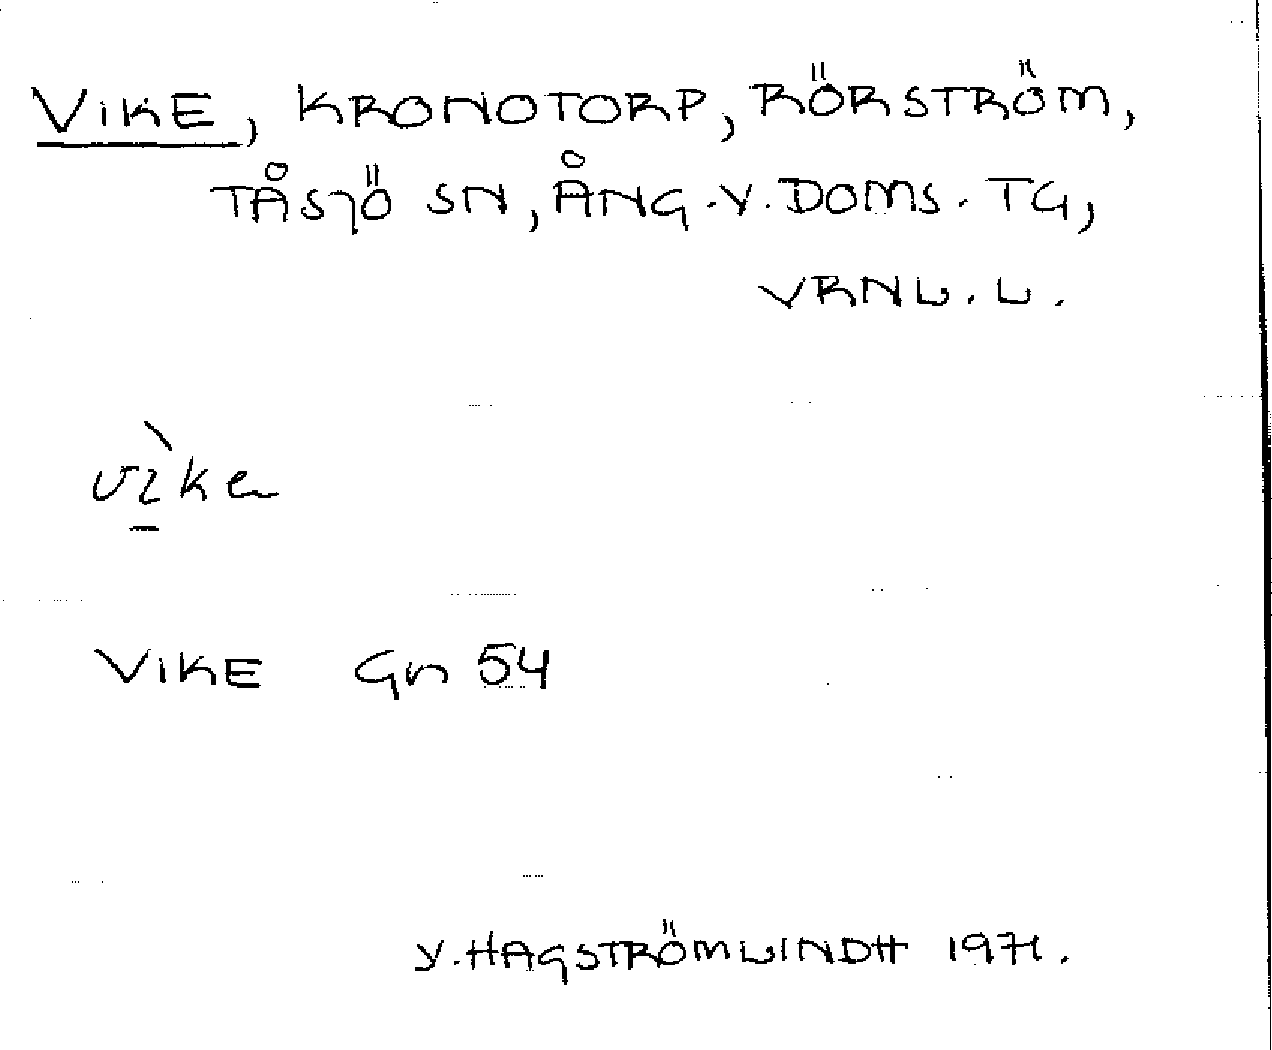 VIKE, KRONOTORP, RÖRSTRÖM,
TÅSJÖ SN, ÅNG.V.DOMS. TG,
VRNL. L.
vìke
VIKE Gn 54
Y.HAGSTRÖMLINDH 1971.